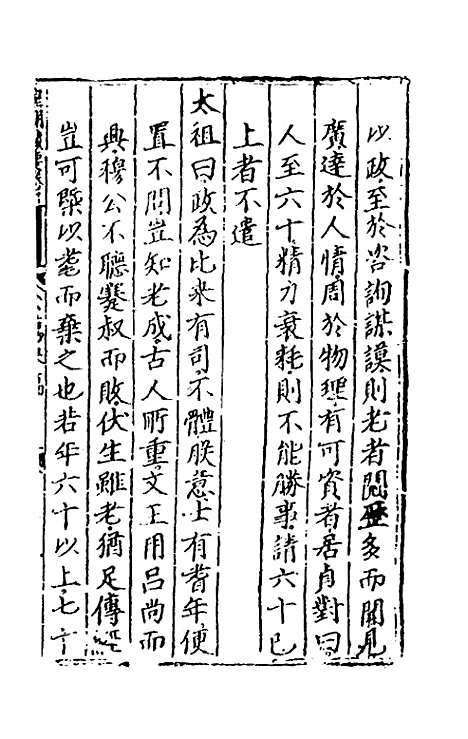 以政至於咨詢謀謨則老者閱歷多而聞見
廣達於人情周於物理有可資者居貞對曰
人至六十精力衰耗則不能勝事請六十已
上者不遣
太祖曰政為比來有司不體朕意士有耆年便
置不問豈知老成古人所重文王用呂尚而
興穆公不聽蹇叔而敗伏生雖老猶足傳經
豈可槩以耄而棄之也若年六十以上七十